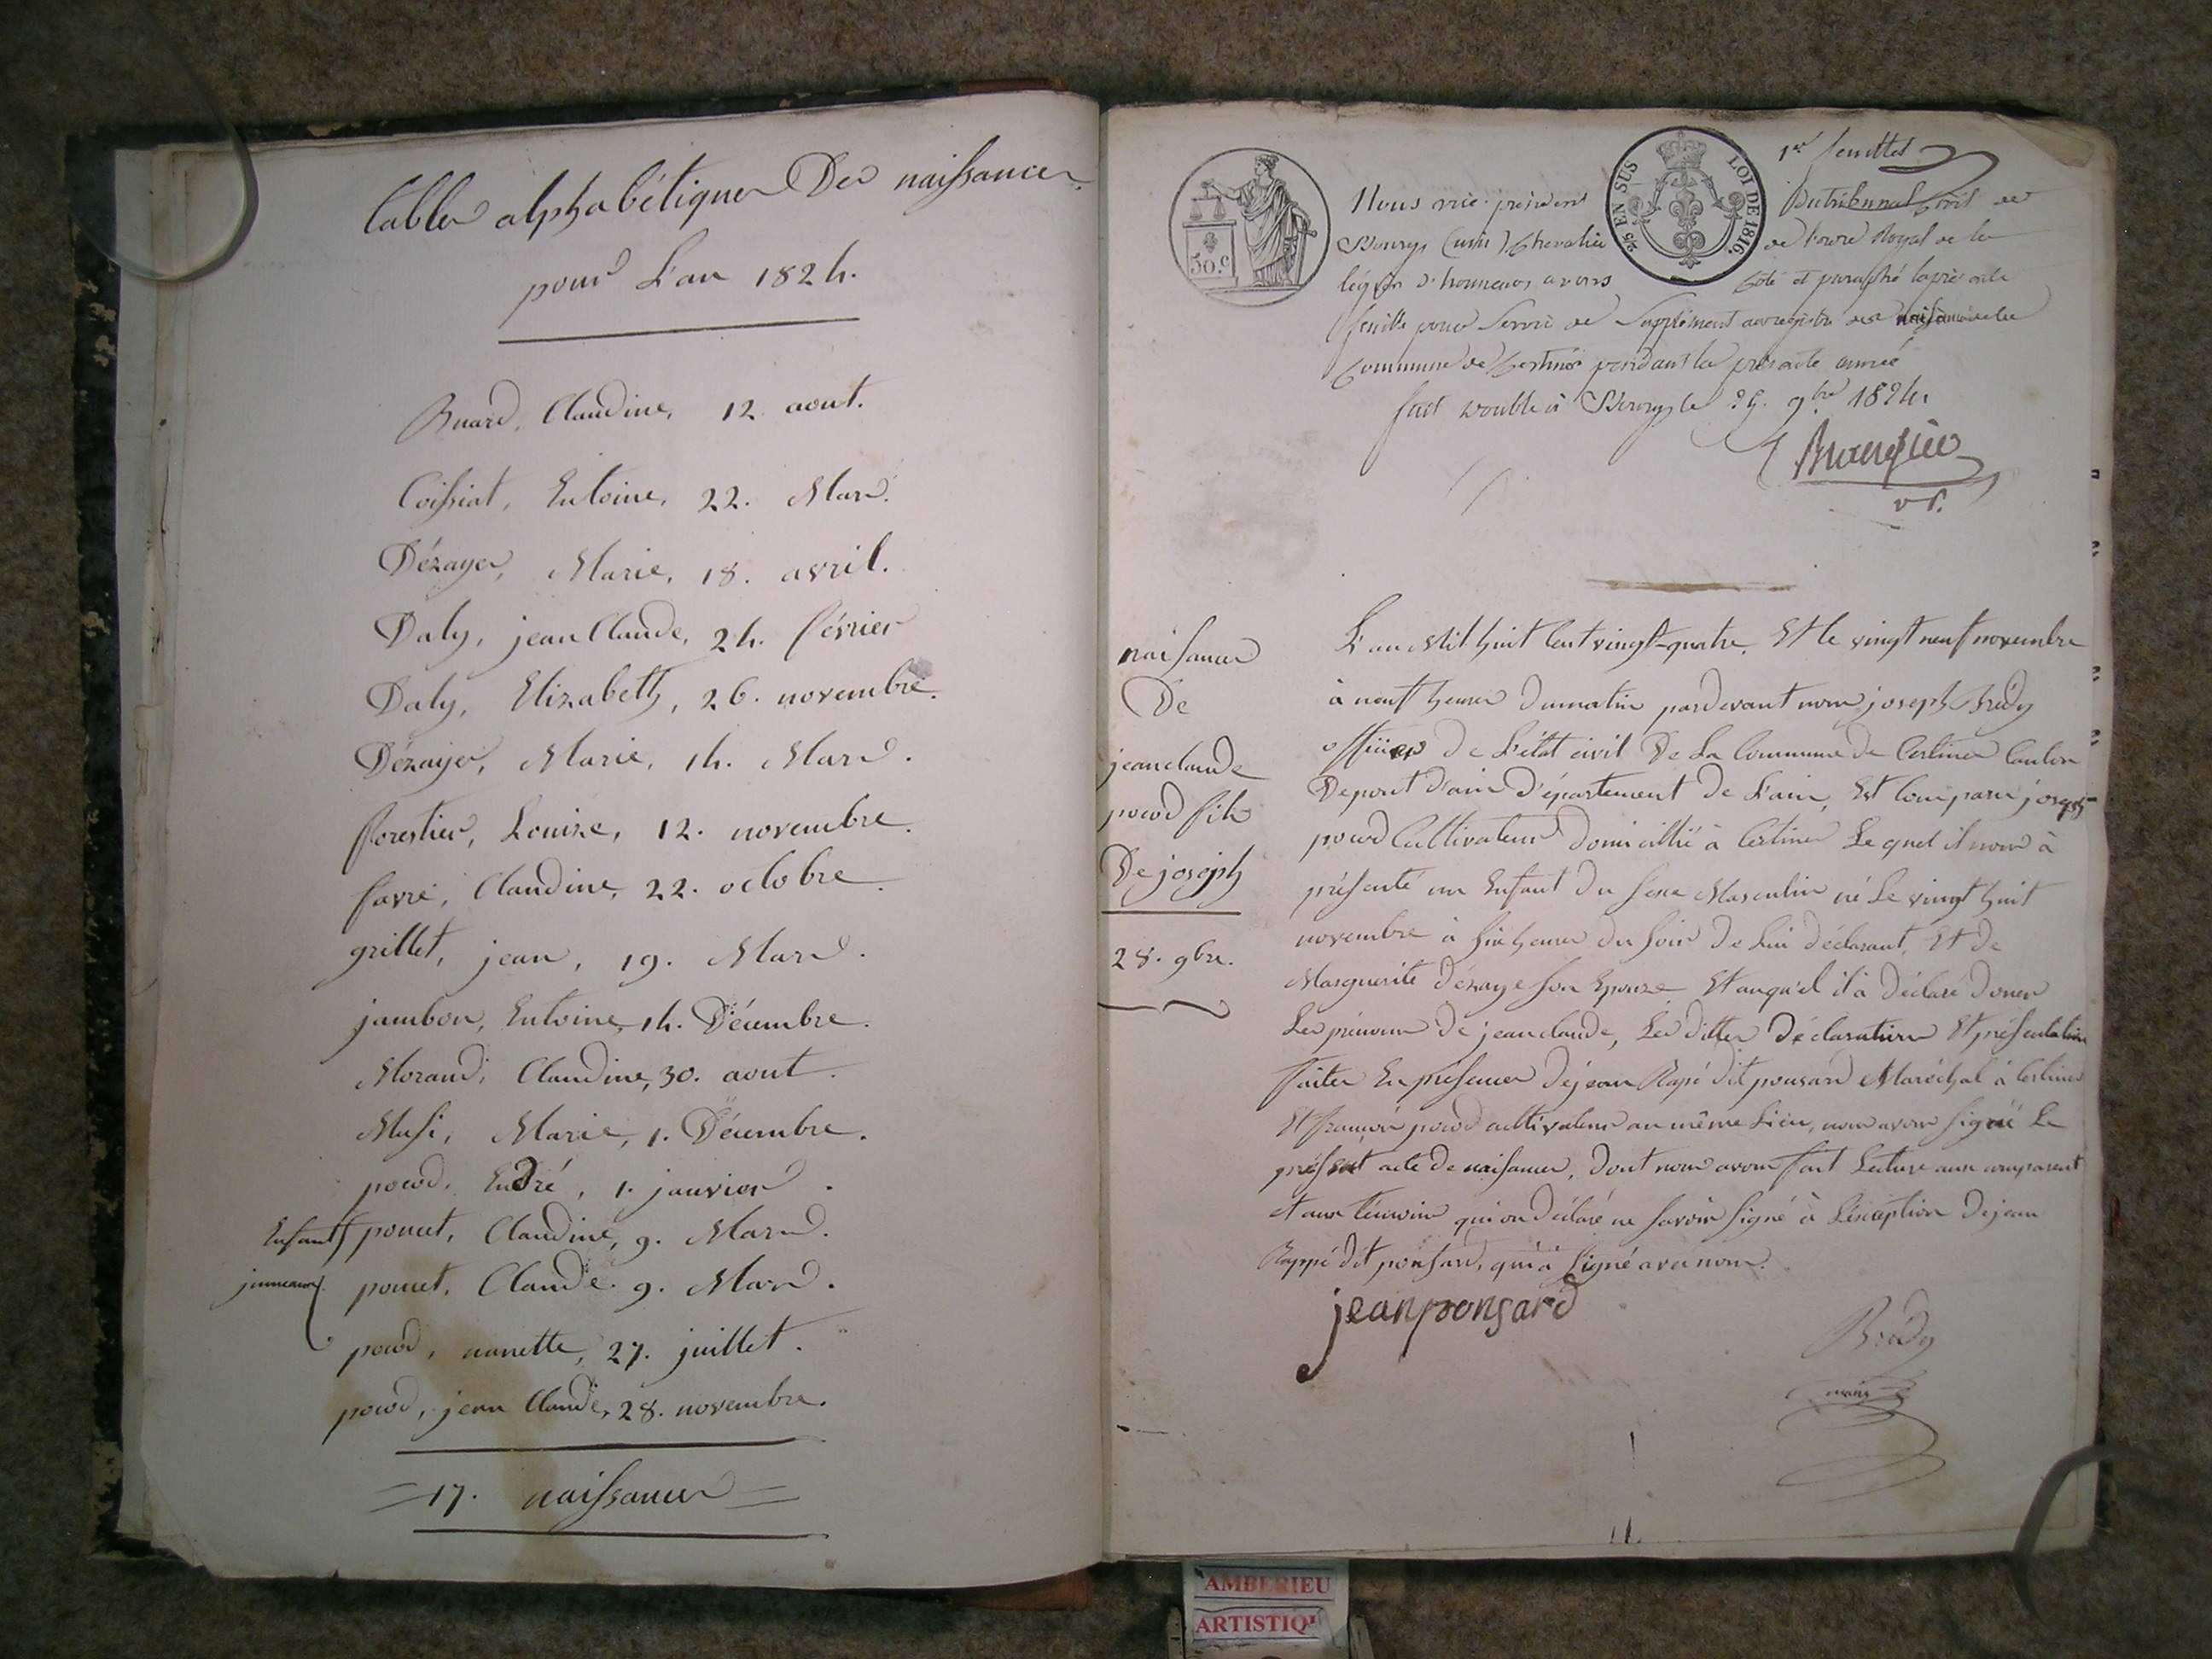 tables alphabétiques Des naissances
pour L'an 1824.
Buard, Claudine, 12 aout.
Coissiat, Entoine, 22. Mars.
Dézayes, Marie, 18. avril.
Daly, jean Claude, 24. février
Daly, Elizabeth, 26. novembre.
Dézayes, Marie, 14. Mars.
forestier, Louize, 12. novembre.
favre, Claudine, 22. octobre.
grillet, jean, 19. Mars.
jambon, Entoine, 14. Décembre.
Morand, Claudine, 30. aout.
Musi, Marie, 1. Décembre.
Endré, 1. janvier.
Enfants poncet, Claudine, 9. Mars.
jumeaux poncet, Claude. 9. Mars.
nanette, 27. juillet.
jean Claude, 28. novembre.
17. naissances
50.c
2/5 EN SUS LOI DE 1816.
1er feuillet
Nous vice-président Du tribunal Civil de
Bourg (ain) Chevalier de l'ordre Royal de la
légion d'honneur, avons Coté et paraphé la présente
feuille pour Servir de Supplément au registre des naissances de la
Commune de Certines pendant la présente année
fait double à Bourg le 25. 9bre 1824.
v P.
naissance
De
jean claude
fils
De joseph
28. 9bre.
L'an Mil huit Cent vingt-quatre. Et le vingt neuf novembre
à neuf heures Du matin pardevant nous joseph Brédy
officier De L'état civil De La Commune De Certines Canton
De pont D'ain D'épartement De L'ain, Est Comparu joseph
Cultivateur Domicillié à Certines Le quel il nous à
présenté un Enfant Du Sexe Masculin né Le vingt huit
novembre à Six heures Du Soir De Lui déclarant, Et De
Marguerite Dézaye Son Epouze Et auquel il à Déclaré Doner
Les prénoms De jean claude, Les Dittes Déclaration Et présentation
faites En présence De jean Rapé dit ponsard Maréchal à Certines
Et françois cultivateur au même Lieu, nous avons Signé Le
présent acte De naissance, Dont nous avons fait Lecture aux comparant
et aux témoins qui on Déclaré ne Savoir Signé à L'éxception De jean
Rappé dit ponsard, qui à Signé avec nous.
jean ponsard
Brédy
maire
AMBERIEU
ARTISTIQ